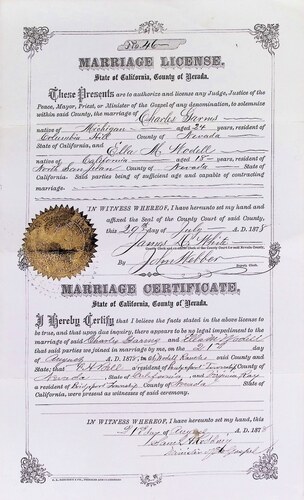 No. 46
MARRIAGE LICENSE.
State of California, County of Nevada.
These Presents are to authorize and license any Judge, Justice of the
Peace, Mayor, Priest, or Minister of the Gospel of any denomination, to solemnize
within said County, the marriage of Charles
native of Michigan aged 24 years, resident of
Columbia Hill County of Nevada
State of California, and Ella M.
native of California aged 18 years, resident of
North San Juan County of Nevada State of
California. Said parties being of sufficient age and capable of contracting
marriage.
IN WITNESS WHEREOF, I have hereunto set my hand and
affixed the Seal of the County Court of said County,
this 29th day of July A.D. 1878
James White
By John Webber
MARRIAGE CERTIFICATE.
State of California, County of Nevada.
I Hereby Certify that I believe the facts stated in the above license
to be true, and that upon due inquiry, there appears to be no legal impediment to the
marriage of said Charles and
that said parties were joined in marriage by me, on the day
of August A.D. 1878, in said County and
State; that a resident of Bridgeport Township County of
Nevada, State of California, and
a resident of Bridgeport Township County of Nevada State of
California, were present as witnesses of said ceremony.
IN WITNESS WHEREOF, I have hereunto set my hand, this
day of August A.D. 1878
Minister of Gospel